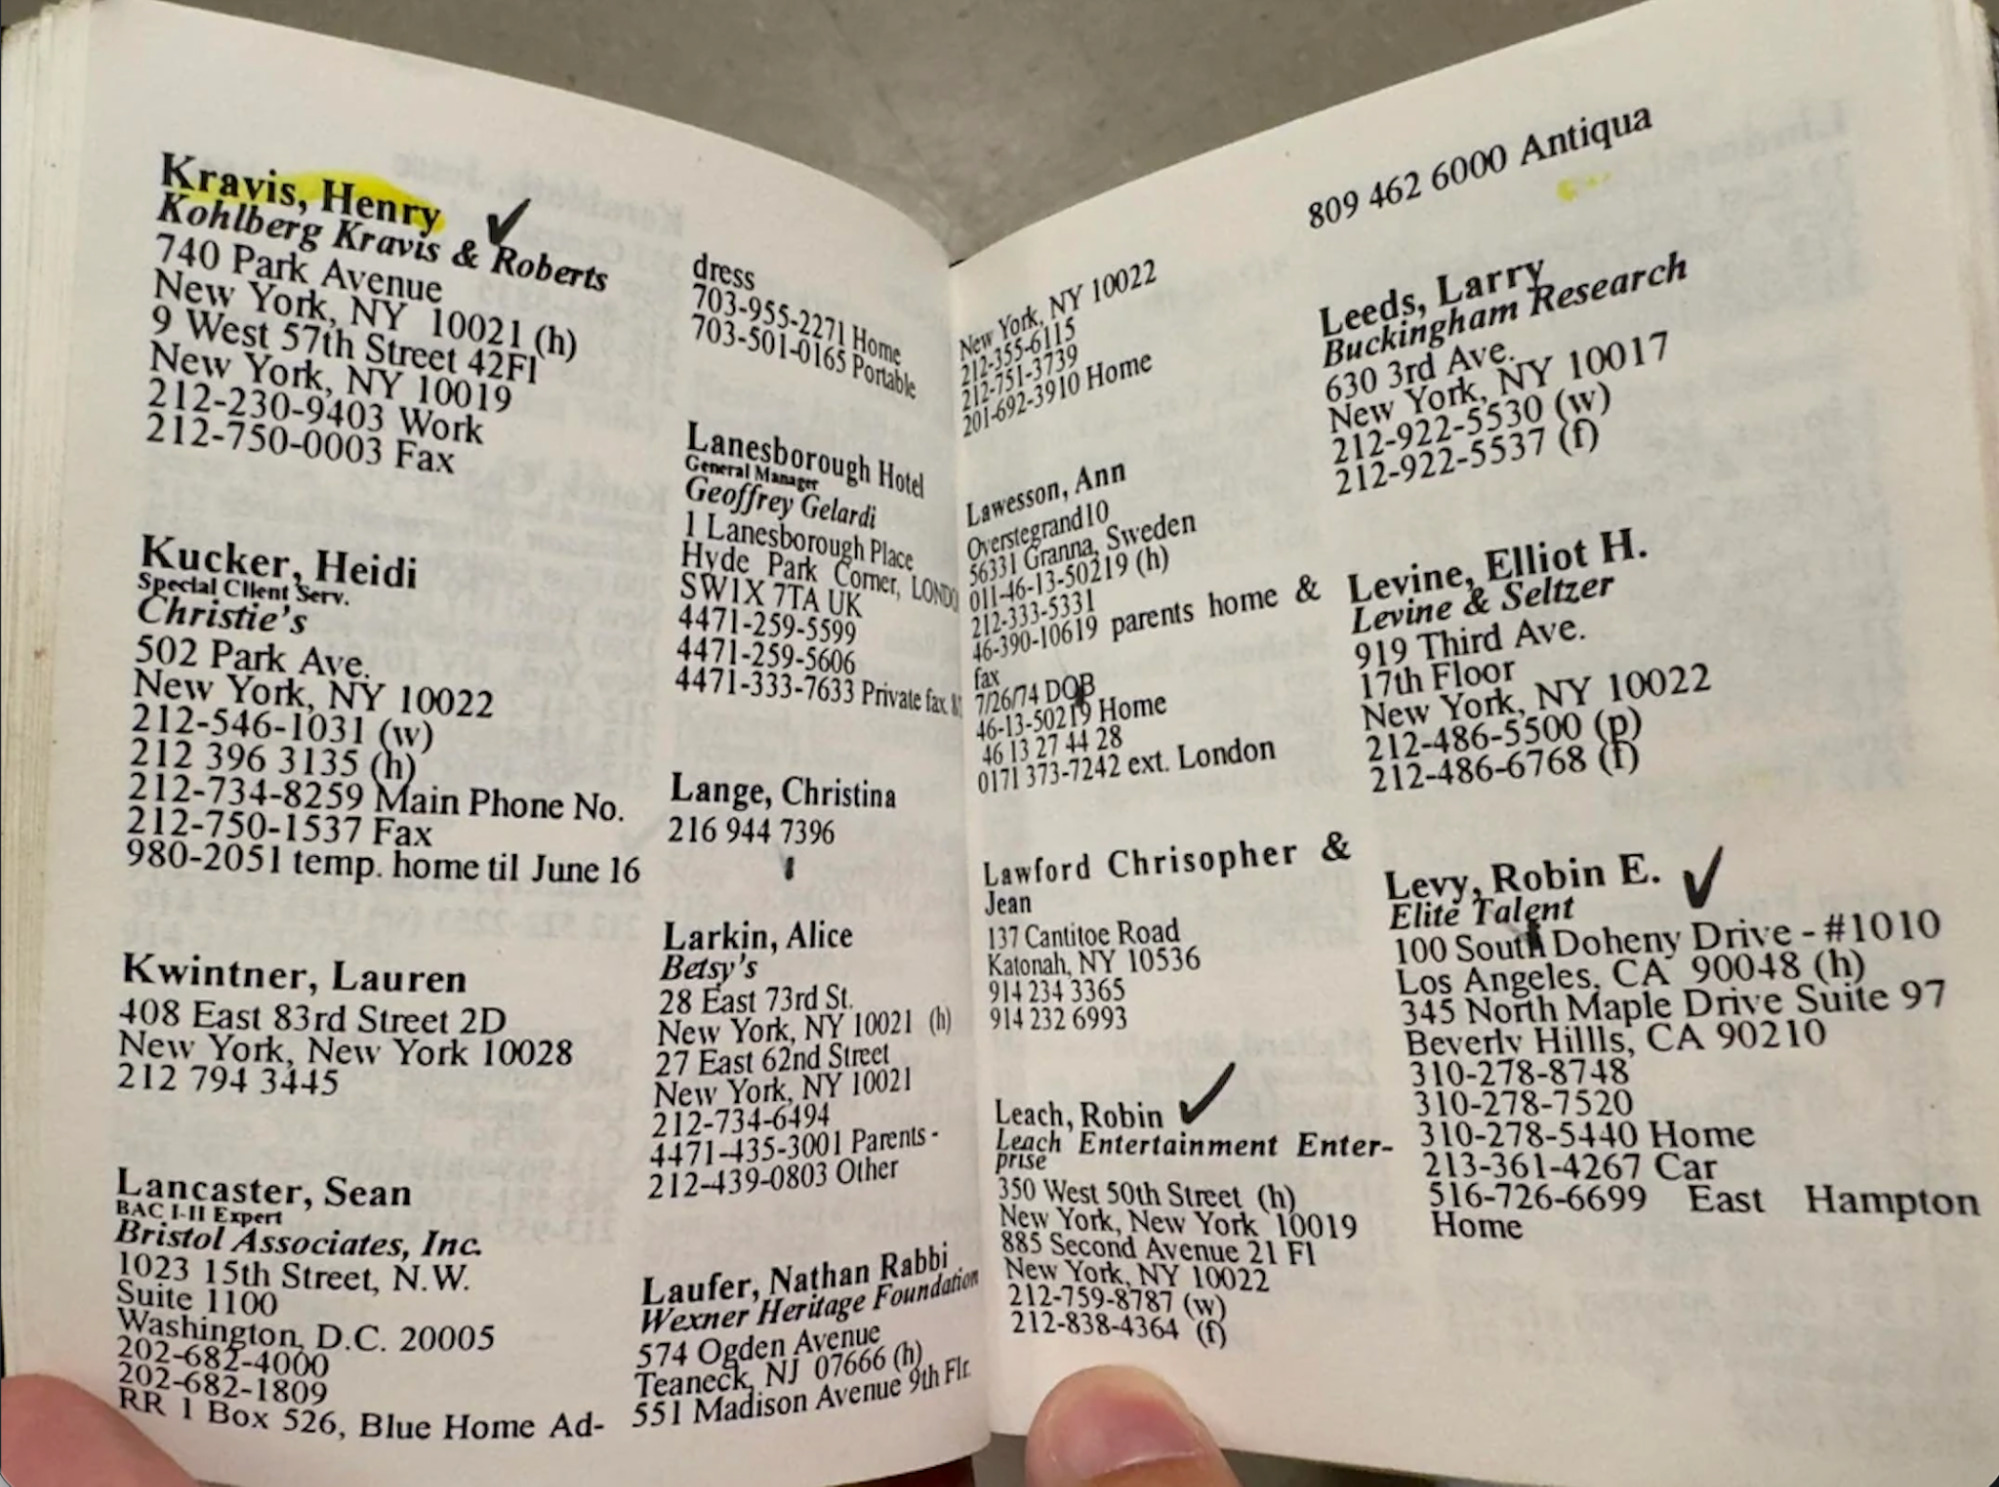 Kravis, Henry
Kohlberg Kravis & Roberts
740 Park Avenue
New York, NY 10021 (h)
9 West 57th Street 42Fl
New York, NY 10019
212-230-9403 Work
212-750-0003 Fax
Kucker, Heidi
Special Client Serv.
Christie's
502 Park Ave.
New York, NY 10022
212-546-1031 (w)
212 396 3135 (h)
212-734-8259 Main Phone No.
212-750-1537 Fax
980-2051 temp. home til June 16
Kwintner, Lauren
408 East 83rd Street 2D
New York, New York 10028
212 794 3445
Lancaster, Sean
BAC I-II Expert
Bristol Associates, Inc.
1023 15th Street, N.W.
Suite 1100
Washington, D.C. 20005
202-682-4000
202-682-1809
RR 1 Box 526, Blue Home Ad-
dress
703-955-2271 Home
703-501-0165 Portable
Lanesborough Hotel
General Manager
Geoffrey Gelardi
1 Lanesborough Place
Hyde Park Corner,
SW1X 7TA UK
4471-259-5599
4471-259-5606
4471-333-7633 Private fax
Lange, Christina
216 944 7396
Larkin, Alice
Betsy's
28 East 73rd St.
New York, NY 10021 (h)
27 East 62nd Street
New York, NY 10021
212-734-6494
4471-435-3001 Parents -
212-439-0803 Other
Laufer, Nathan Rabbi
Wexner Heritage Foundation
574 Ogden Avenue
Teaneck, NJ 07666 (h)
551 Madison Avenue 9th Flr.
New York, NY 10022
212-355-6115
212-751-3739
201-692-3910 Home
Lawesson, Ann
Overstegrand10
56331 Granna, Sweden
011-46-13-50219 (h)
212-333-5331
46-390-10619 parents home &
fax
7/26/74 DOB
46-13-50219 Home
46 13 27 44 28
0171 373-7242 ext. London
Lawford Chrisopher &
Jean
137 Cantitoe Road
Katonah, NY 10536
914 234 3365
914 232 6993
Leach, Robin
Leach Entertainment Enter-
prise
350 West 50th Street (h)
New York, New York 10019
885 Second Avenue 21 Fl
New York, NY 10022
212-759-8787 (w)
212-838-4364 (f)
809 462 6000 Antiqua
Leeds, Larry
Buckingham Research
630 3rd Ave.
New York, NY 10017
212-922-5530 (w)
212-922-5537 (f)
Levine, Elliot H.
Levine & Seltzer
919 Third Ave.
17th Floor
New York, NY 10022
212-486-5500 (p)
212-486-6768 (f)
Levy, Robin E.
Elite Talent
100 South Doheny Drive - #1010
Los Angeles, CA 90048 (h)
345 North Maple Drive Suite 97
Beverly Hillls, CA 90210
310-278-8748
310-278-7520
310-278-5440 Home
213-361-4267 Car
516-726-6699 East Hampton
Home